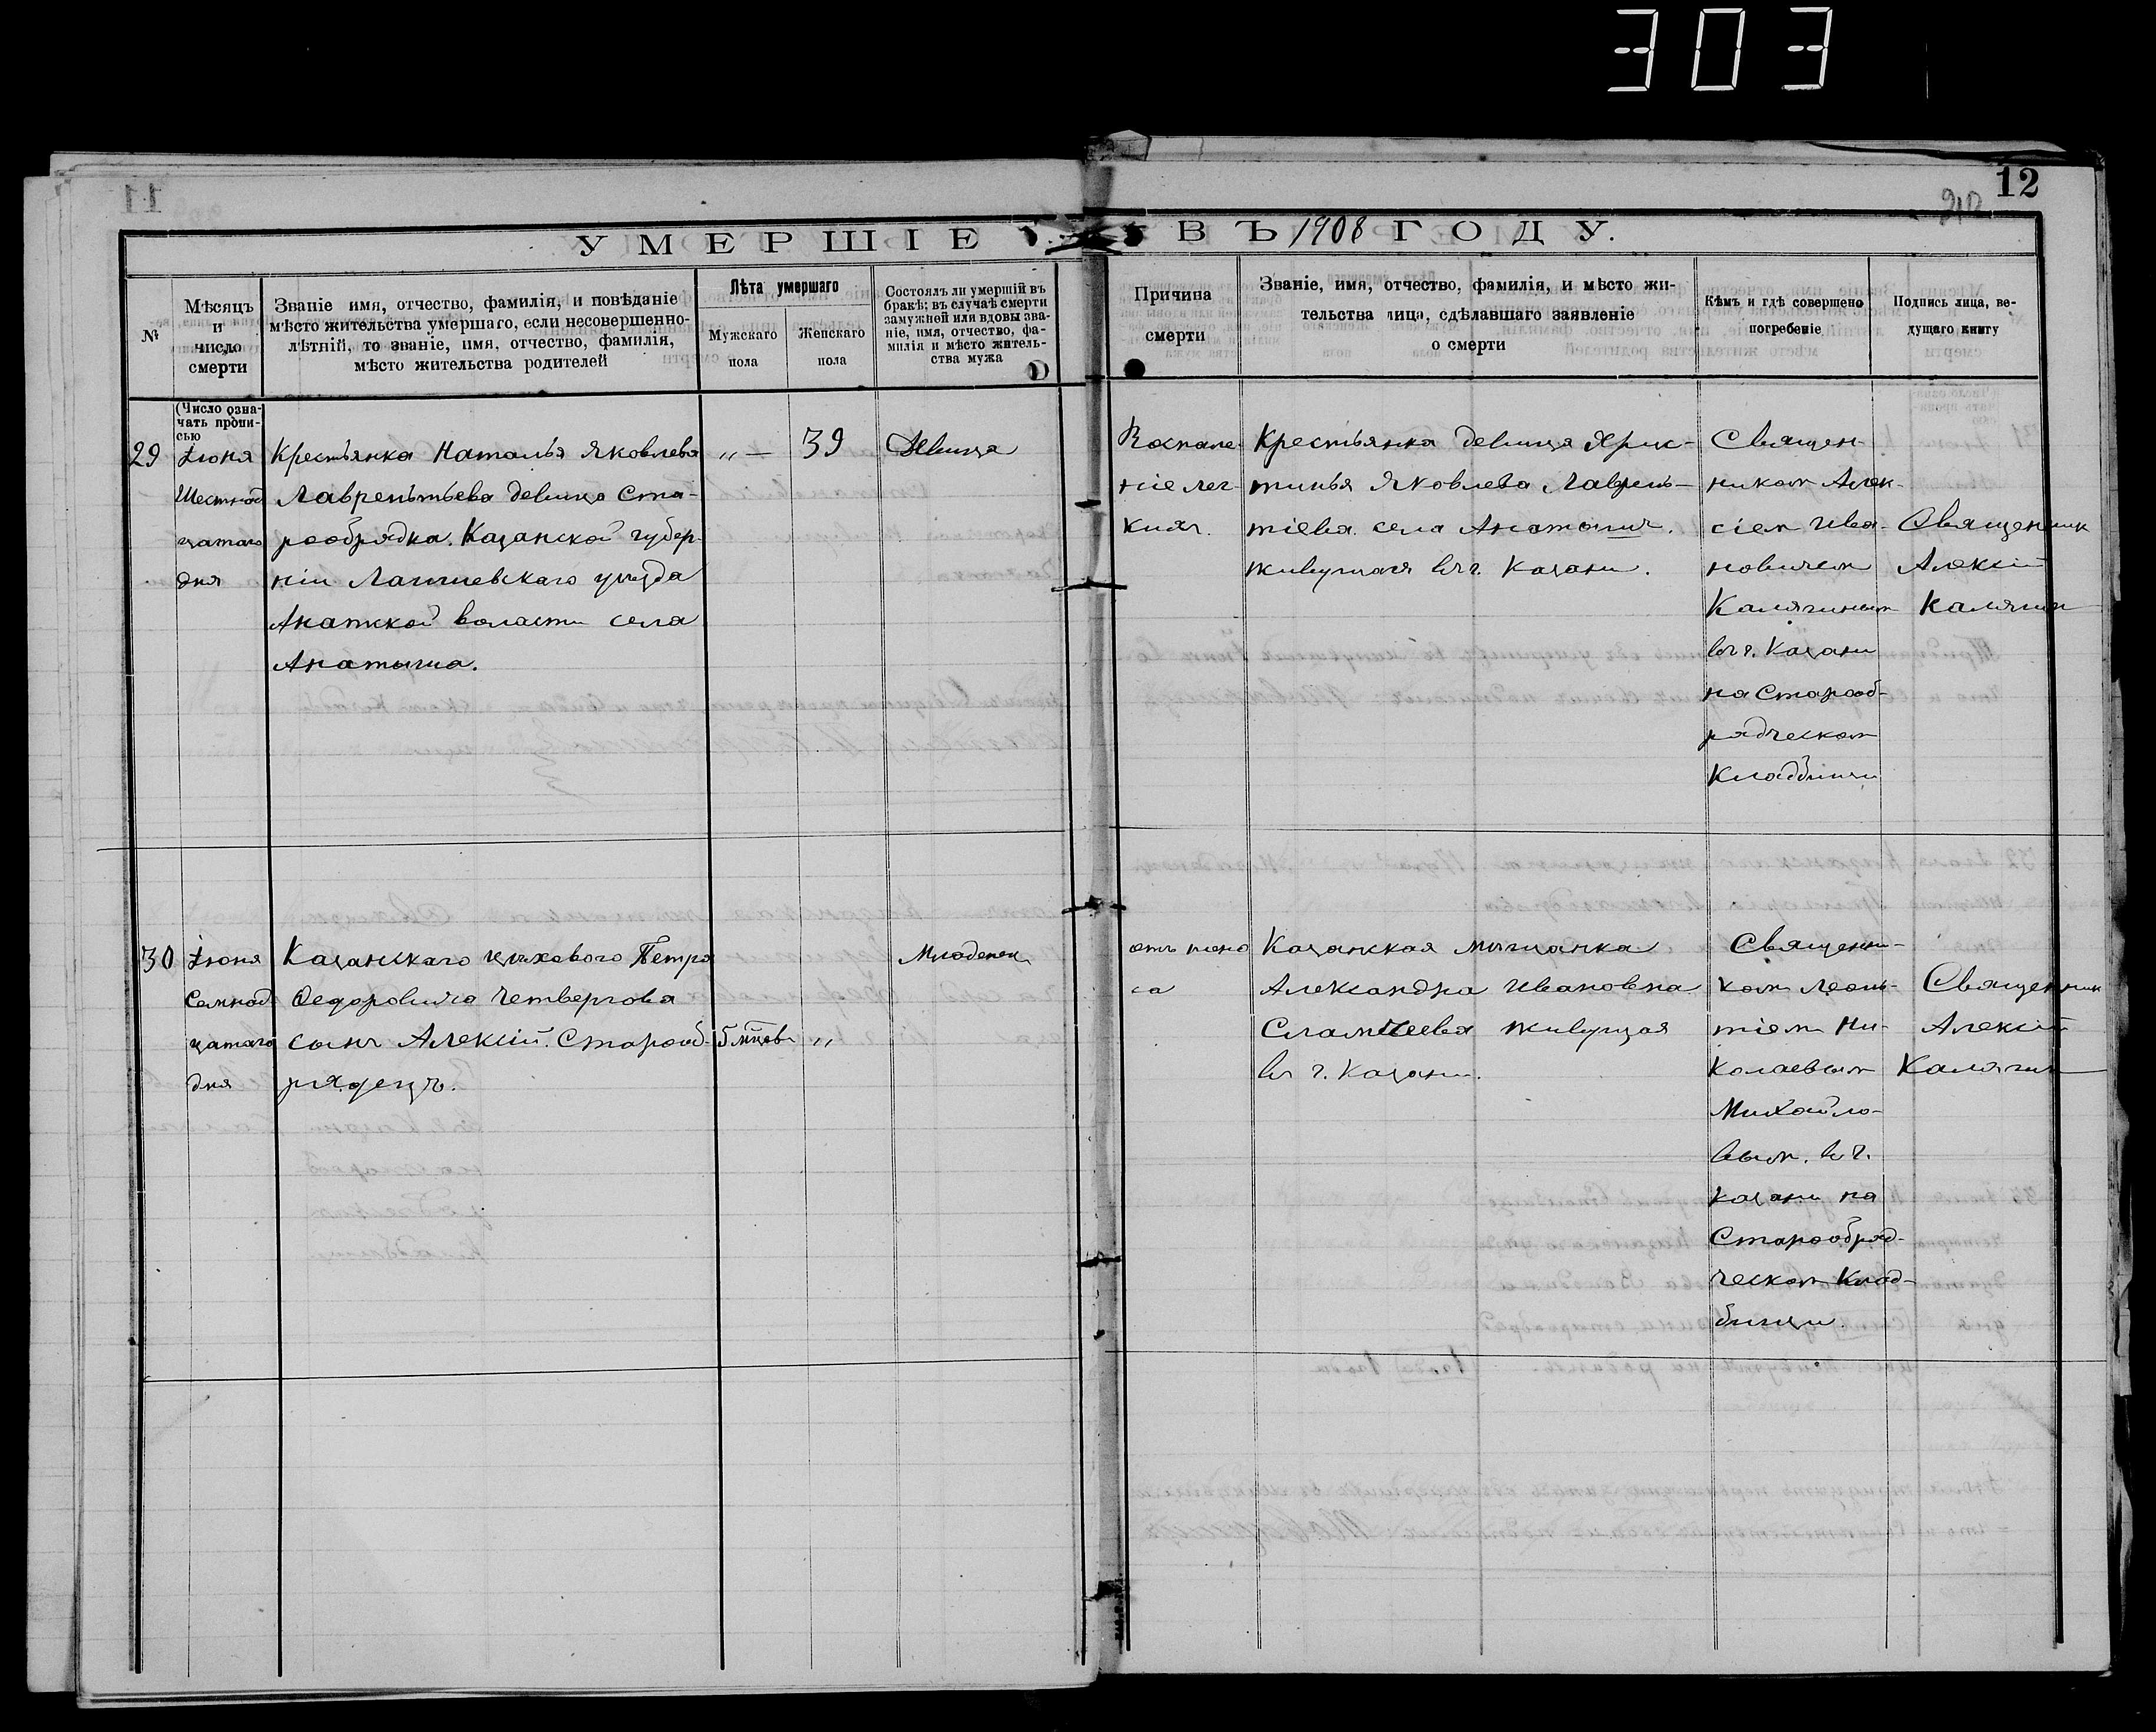 303
11
12
УМЕРШІЕ ВЪ 1908 ГОДУ.
№
Мѣсяцъ
и
число
смерти
Званіе имя, отчество, фамилія, и повѣданіе
мѣсто жительства умершаго, если несовершенно-
лѣтній, то званіе, имя, отчество, фамилія,
мѣсто жительства родителей
Лѣта умершаго
Мужскаго
пола
Женскаго
пола
Состоялъ ли умершій въ
бракѣ; въ случаѣ смерти
замужней или вдовы зва-
ніе, имя, отчество, фа-
милія и мѣсто житель-
ства мужа
Причина
смерти
Званіе, имя, отчество, фамилія, и мѣсто жи-
тельства лица, сдѣлавшаго заявленіе
о смерти
Кѣмъ и гдѣ совершено
погребеніе
Подпись лица, ве-
дущаго книгу
(Число озна-
чать пропи-
сью
29
Іюня
Шестнад
цатаго
дня
Крестьянка Наталья Яковлева
Лаврентьева девица Ста-
рообрядка. Казанской губер-
ніи Лаишевскаго уезда
Анаткой воласти села
Анатыша.
„ —
39
Девица
Воспале
ніе лег-
кихъ.
Крестьянка девица Хрис-
тинья Яковлева Лаврень-
тіева села Анатышъ.
живущая въ г. Казани.
Священ-
ником Алек-
сіем Ива-
новичем
Калягиным
въ г. Казани
на Старооб-
рядческом
Кладбищи
Священник
Алексій
Калягин
30
Іюня
Семнад
цатаго
дня
Казанскаго цыховаго Петра
Федоровича Четвергова
сынъ Алексій. Старооб-
рядецъ.
5 мцов
„
Младенец
отъ поно
са
Казанская мещанка
Александра Ивановна
живущая
въ г. Казани.
Священни-
ком Леонь-
тіем Ни-
колаевым
Михайло-
вым. въ г.
Казани на
Старообряд-
ческом Клад-
бищи.
Священник
Алексій
Калягин